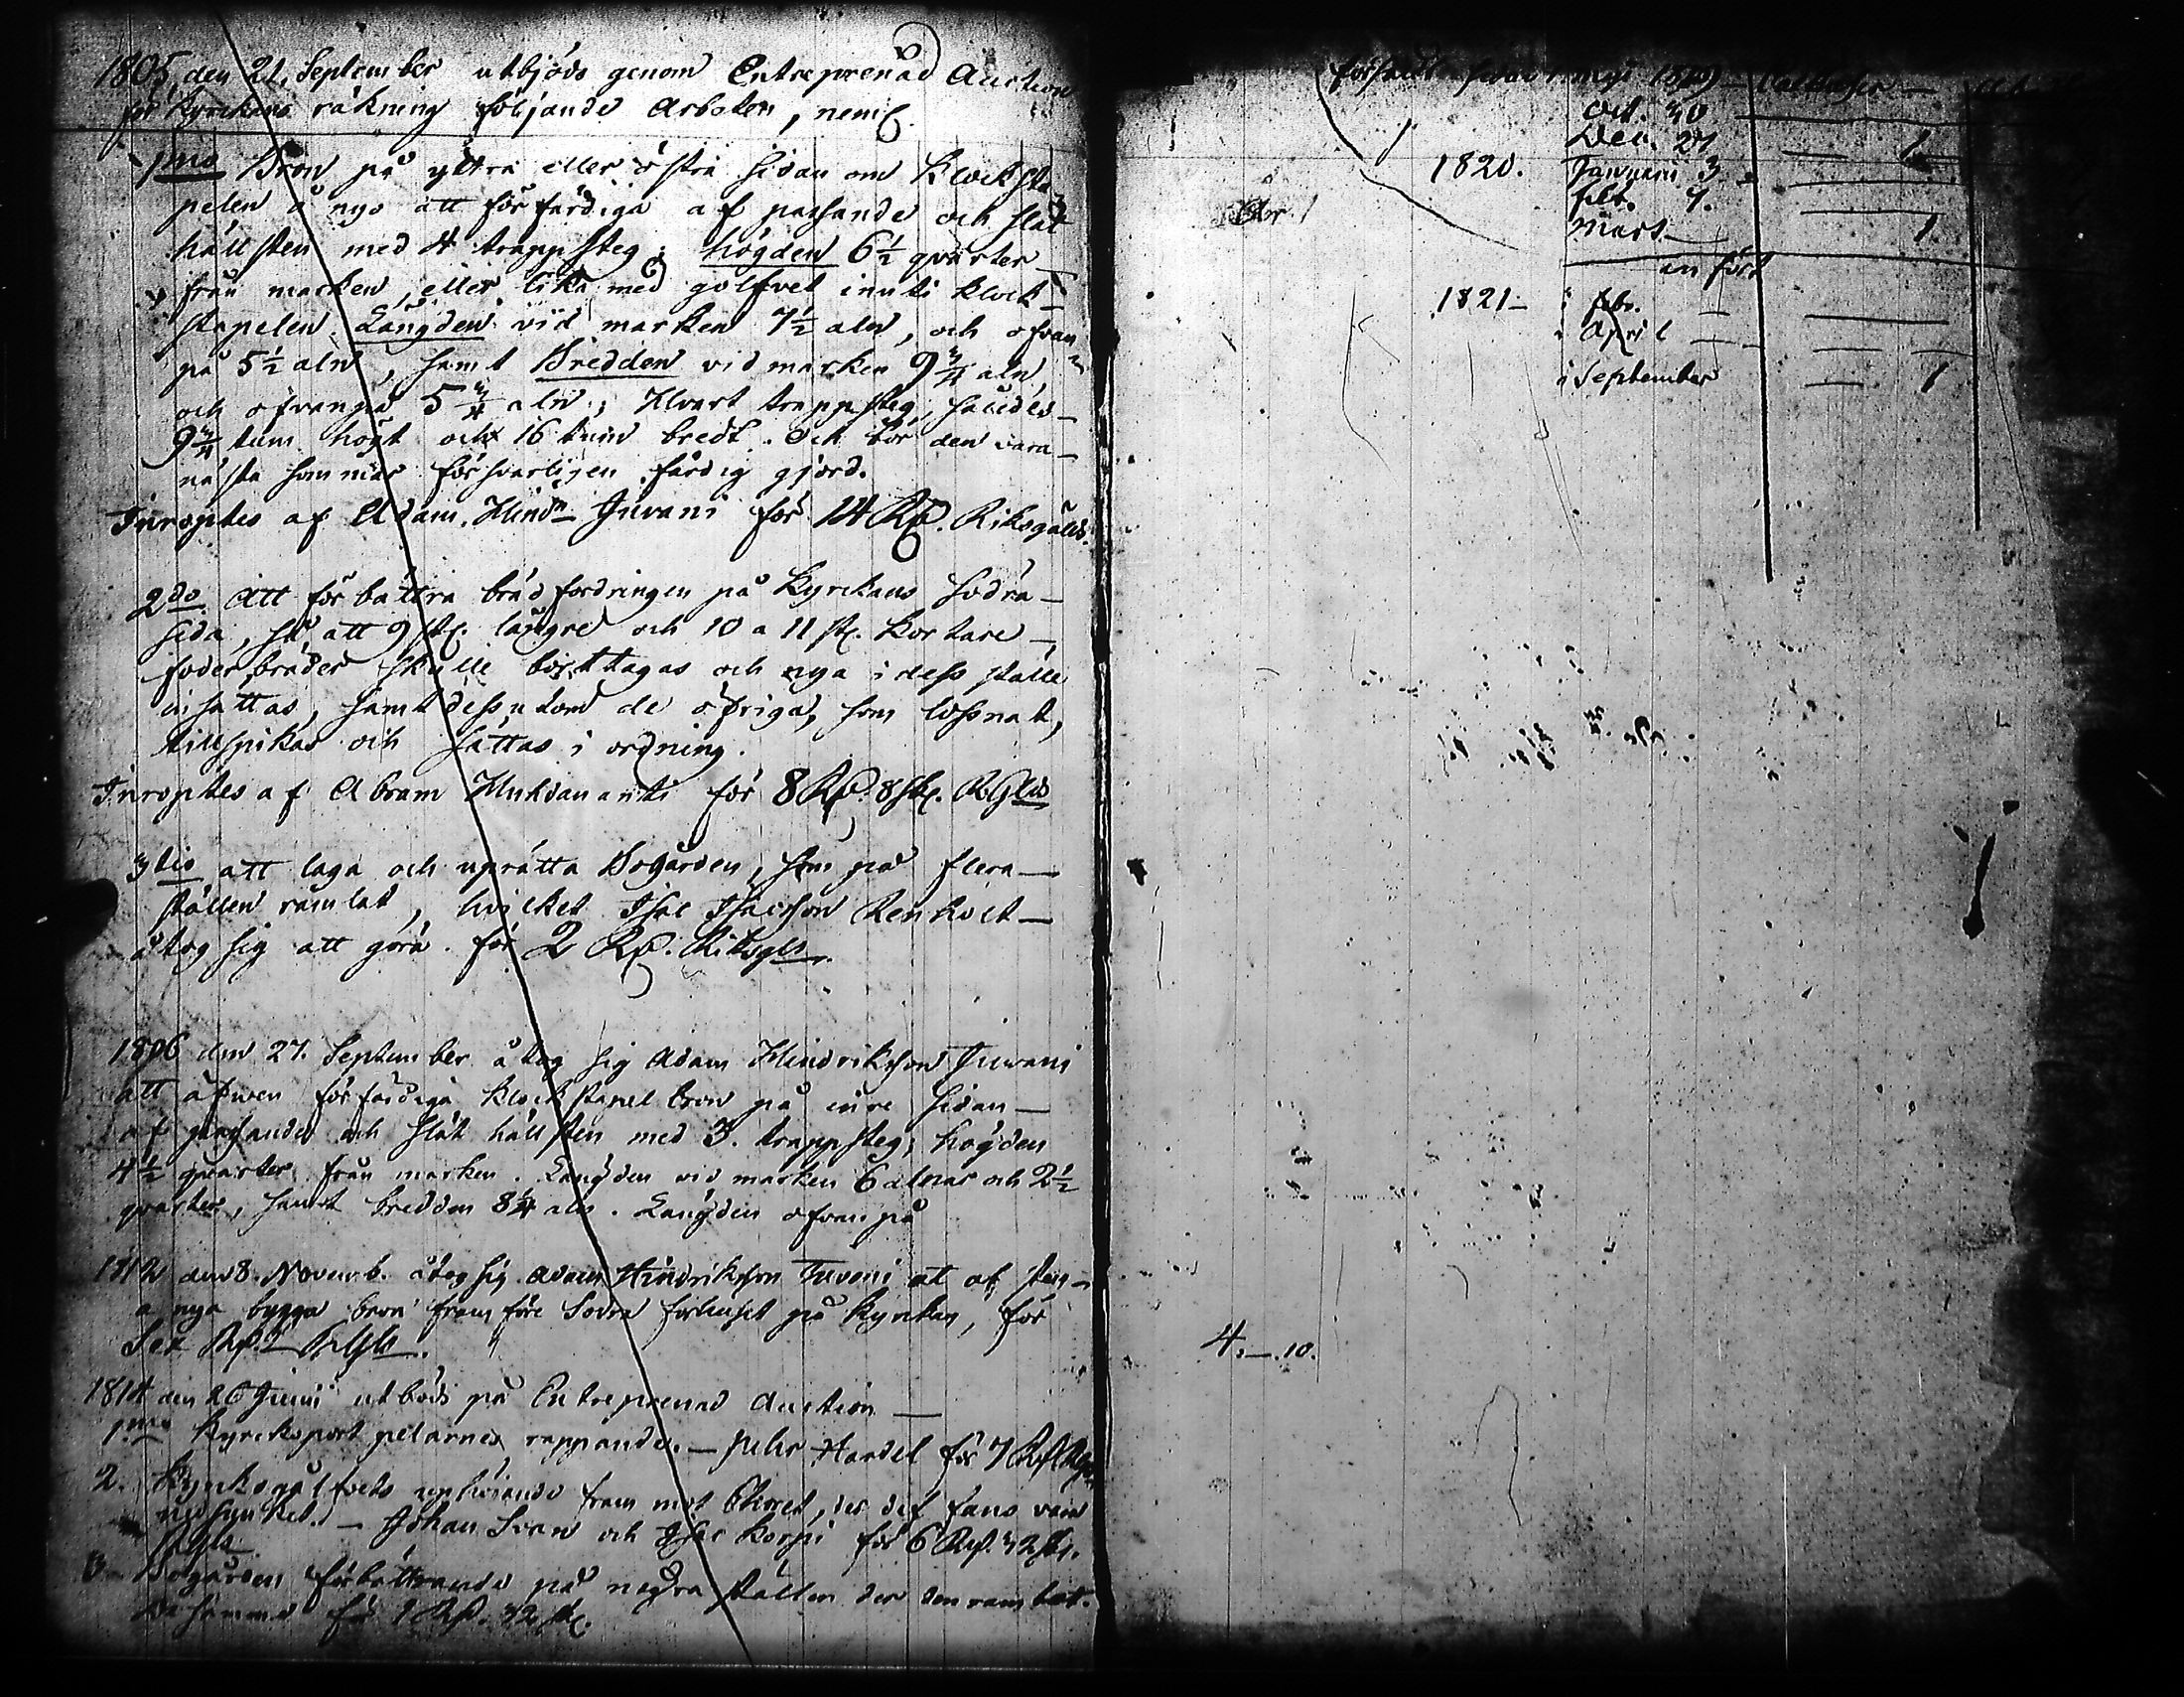 1805 den 21. September utbjöds genom Entreprenad Auction
för Kyrckans räkning följande Arbeten, neml.
1mo Bron på yttra eller östra sidan om Klocksta-
pelen å nyo att förfärdiga af passande och slät
hällsten med 4 trappsteg; högden 6½ qvarter
från marken, eller lika med golfvet innuti klock-
stapelen. Längden vid marken 7½ aln, och ofvan
på 5½ aln, samt Bredden vid marken 9¾ aln,
och ofvanpå 5¾ aln; Hvart trappsteg, således
9¾ tum högt och 16 tum bredt. Och bör den vara
nästa sommar försvarligen färdig gjord.
Inroptes af Adam Hindr. Juvani för 14 Rd. Riksgälds.
2do Att förbättra brädfordringen på Kyrckans södra
sida, så att 9 st. längre och 10 a 11 st. kortare
foderbräder skulle borttagas och nya i dess ställe
insättas, samt dessutom de öfriga, som lossnat,
tillspikas och sättas i ordning.
Inroptes af Abram Huhdanantti för 8 Rd. 8 sk. RGlds
3tio att laga och uprätta Bogården, som på flera
ställen ramlat, hvilket Isac Isacsson
åtog sig att göra för 2 Rd. Riksgls.
1806 den 27. September åtog sig Adam Hindriksson Juvani
att äfwen förfärdiga Klockstapel bron på inre sidan
af passande och slät hällsten med 3. trappsteg; högden
4½ qvarter från marken. Längden vid marken 6 alnar och 2½
qvarter, samt bredden 8¼ aln. Längden ofvan på
1812 den 8. Novemb. åtog sig Adam Hindriksson Juvani at af sten
å nya bygga bron framföre Södra förhuset på kyrkan, för
Sex Rd. RGls.
1814 den 26 Junii utböds på Entreprenad Auction
1mo Kyrckoport pelarnes rappande. — Pehr Hardel för 7 Rd. RGs
2. Kyrkogålfvets uphöjande fram mot Choret, der det fans vara
nedsunket. — Johan Sven och Isac Korpi för 6 Rd. 32 sk.
RGls
3 - Bogårdens förbättrande på några ställen der den ramlat.
De samma för 1 Rd. 32 sk.
Oct. 30
Dec. 27 — 1
1820. Januarii 3
febr. 9.
Mars — 1
1821 — febr.
April
September — 1
4. — 10.